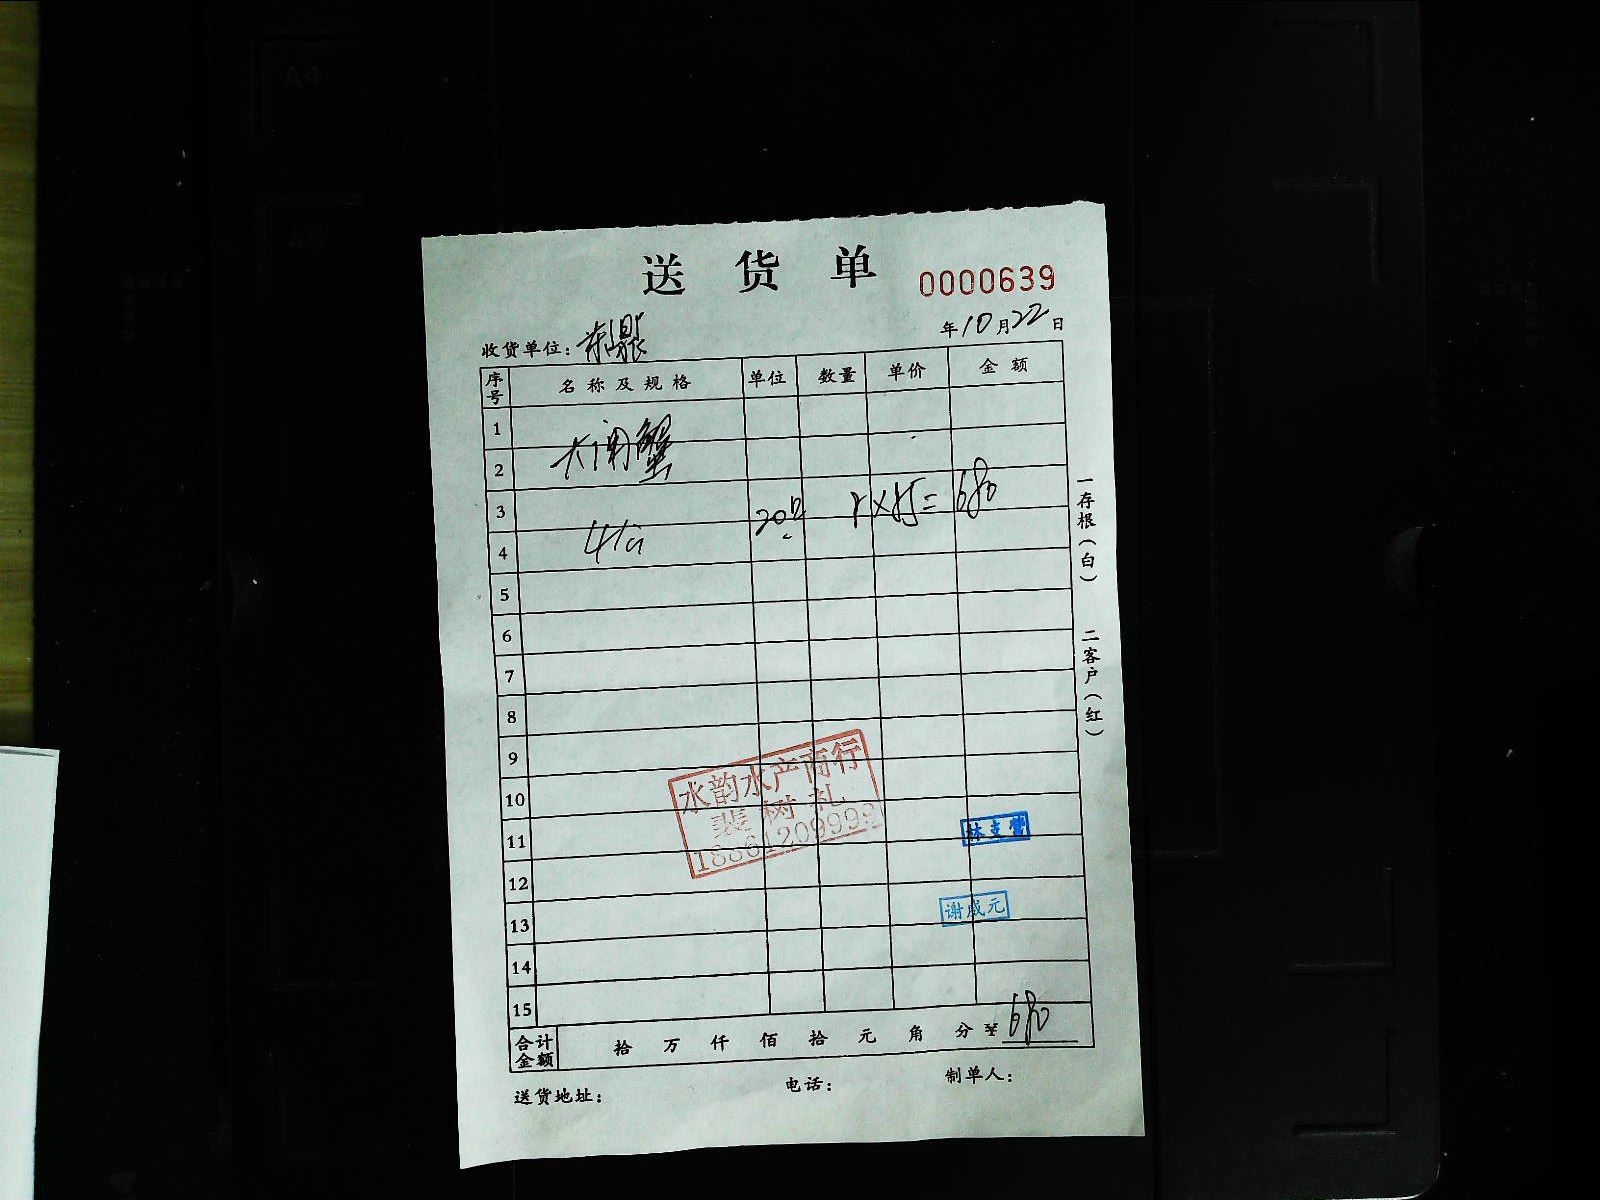 送货单 0000639
收货单位: 年10月22日
序号 名称及规格 单位 数量 单价 金额
1
大闸蟹
2
3
20只 8×85=680
4
5
6
7
8
9
10
11
12
13
14
15
合计金额 拾 万 仟 佰 拾 元 角 分 ¥ 680
送货地址: 电话: 制单人:
一存根(白) 二客户(红)
水韵水产商行
裴树礼
林支营
谢成元
A4
A5